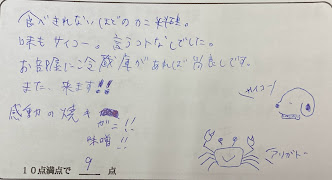 食べきれないほどのカニ料理。
味もサイコー。言うコトなしでした。
お部屋に冷蔵庫があれば尚良しです。
また、来ます!!
サイコー!
感動の焼き
ガニ!!
味噌!!
アリガトー
10点満点で 9 点